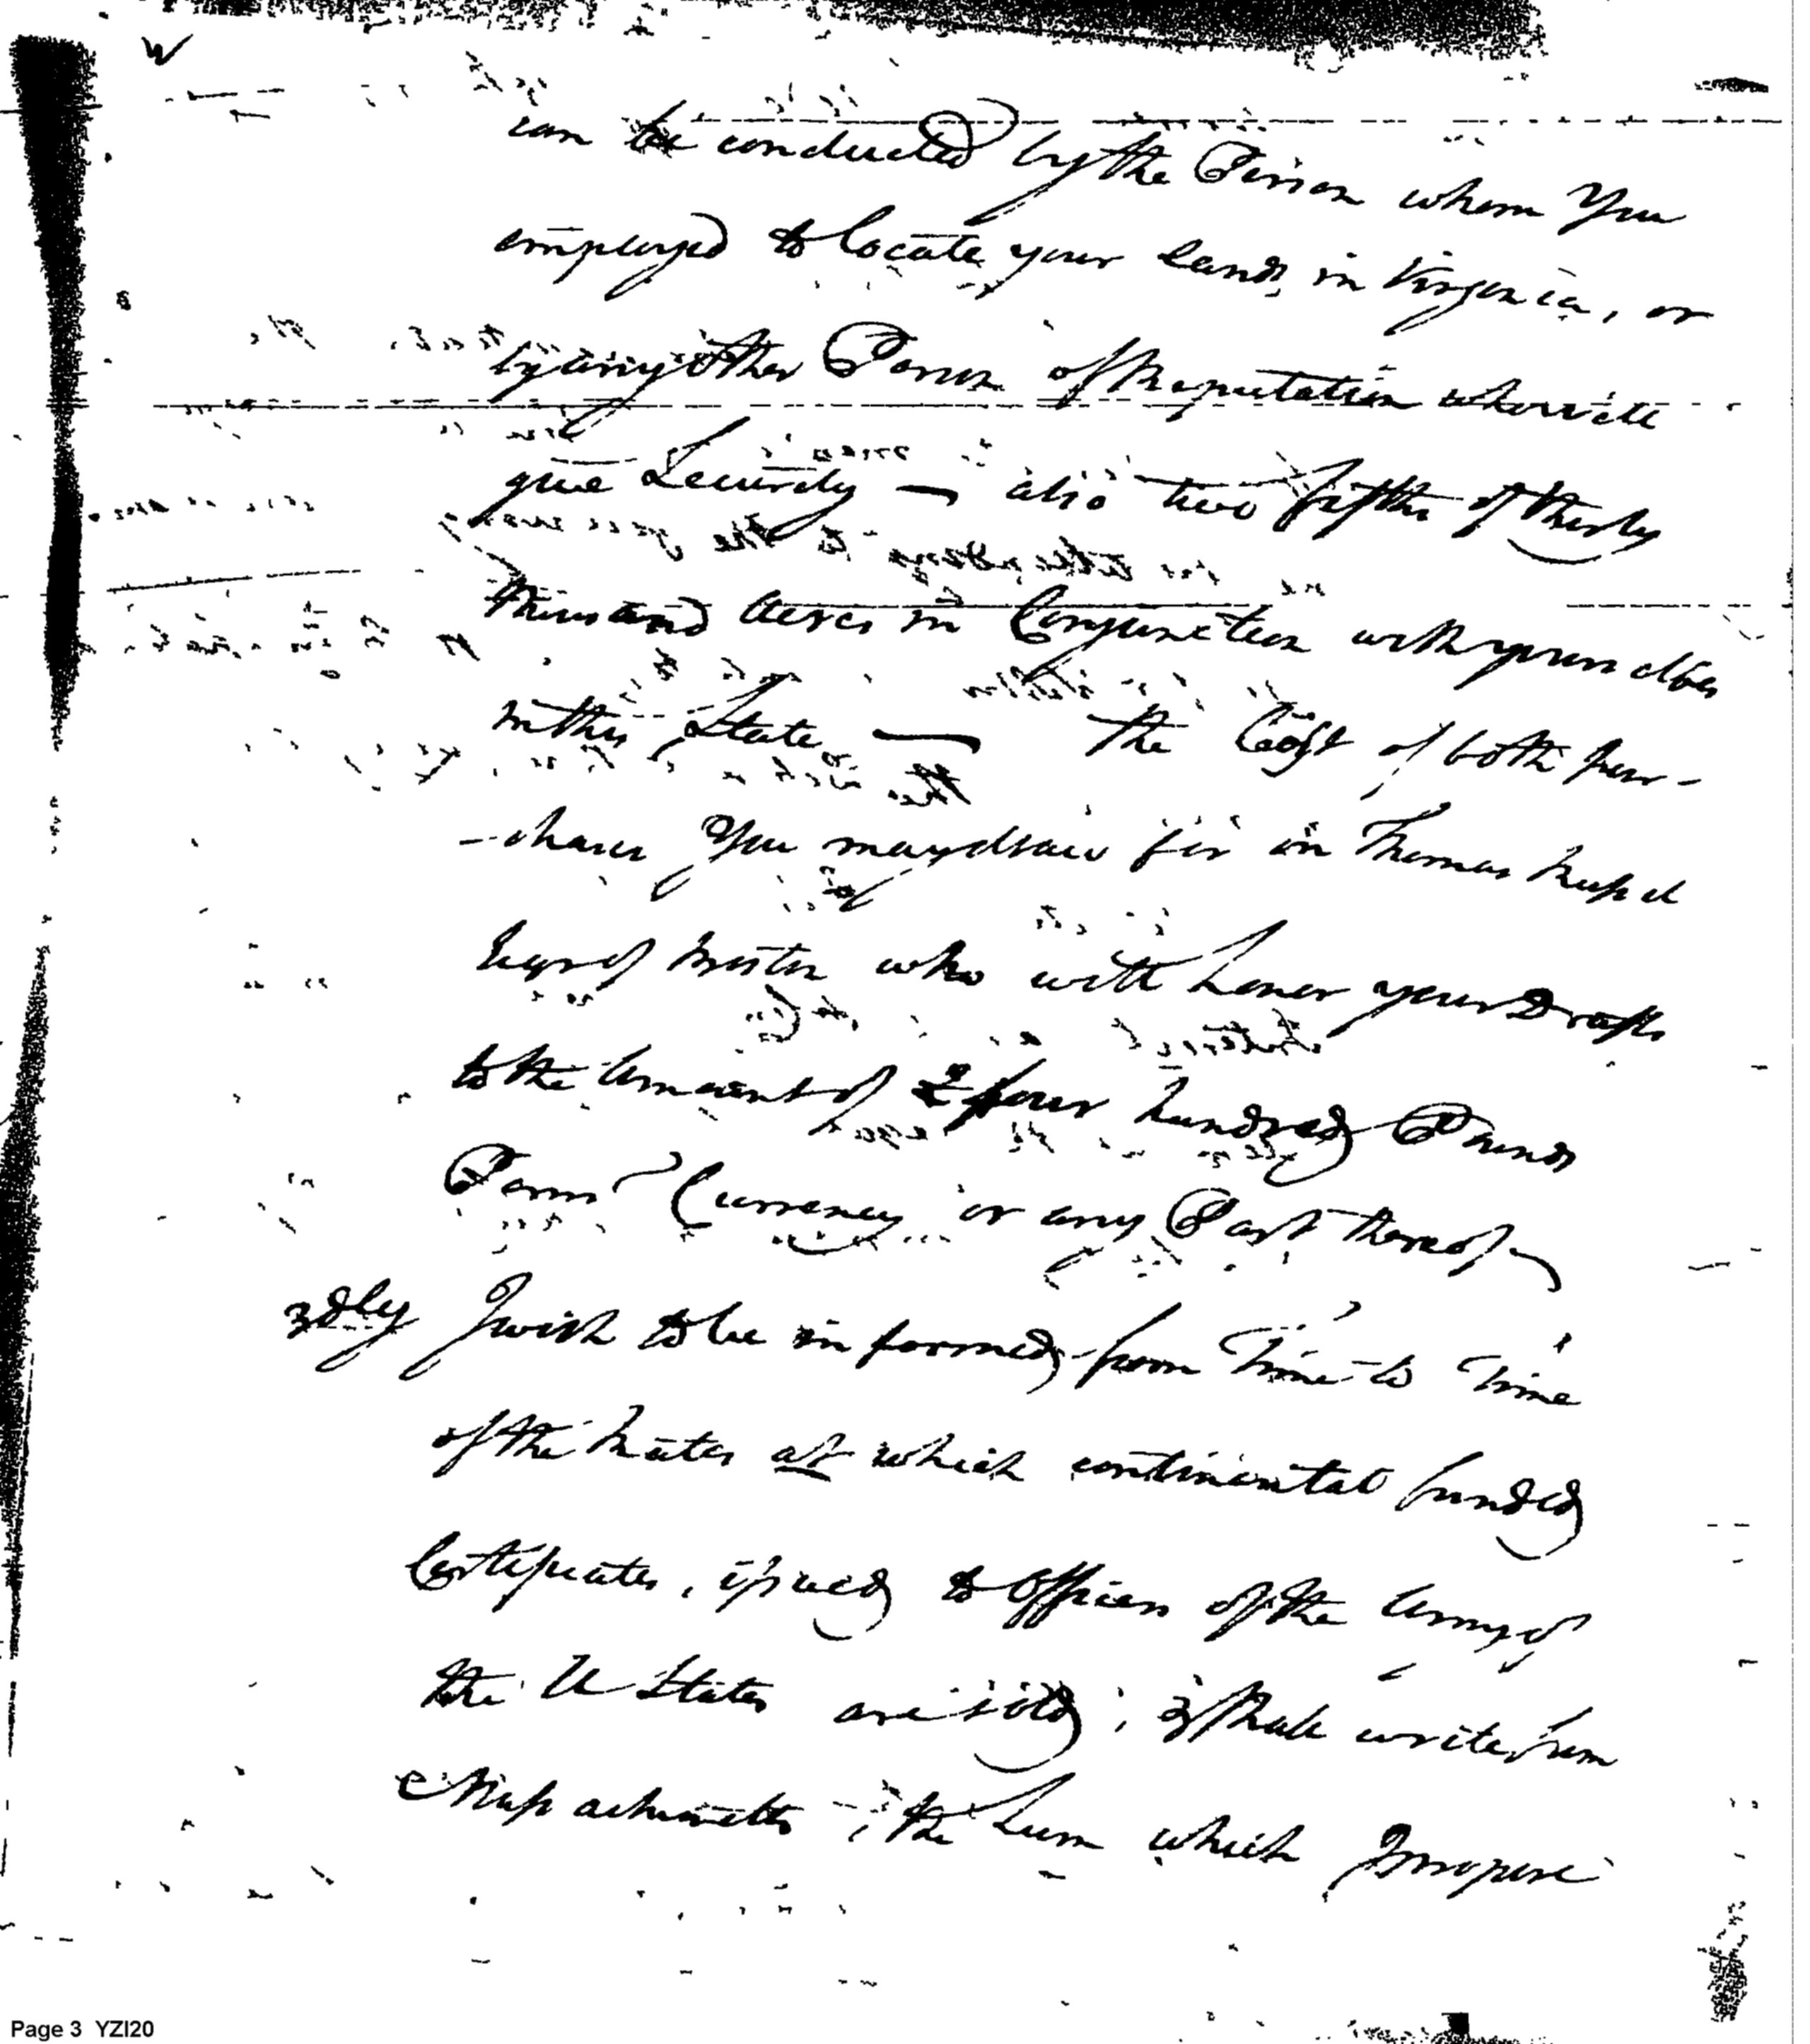 W
can be conducted by the Person whom You
employed to locate your Lands in Virginia, or
by any other Person of Reputation who will
give Security — also two fifths of thirty
thousand Acres in Conjunction with yourselves
in this State — The Cost of both pur-
-chases You may draw for on Thomas Russel
Esqr of Boston who will honor your Drafts
to the Amount of four hundred Pounds
Penn Currency or any Part thereof
3dly I wish to be informed from Time to Time
of the Rates at which continental funded
Certificates, issued to Officers of the Army of
the U States are sold; I shall write from
Massachusetts, the Sum which I propose
Page 3 YZI20